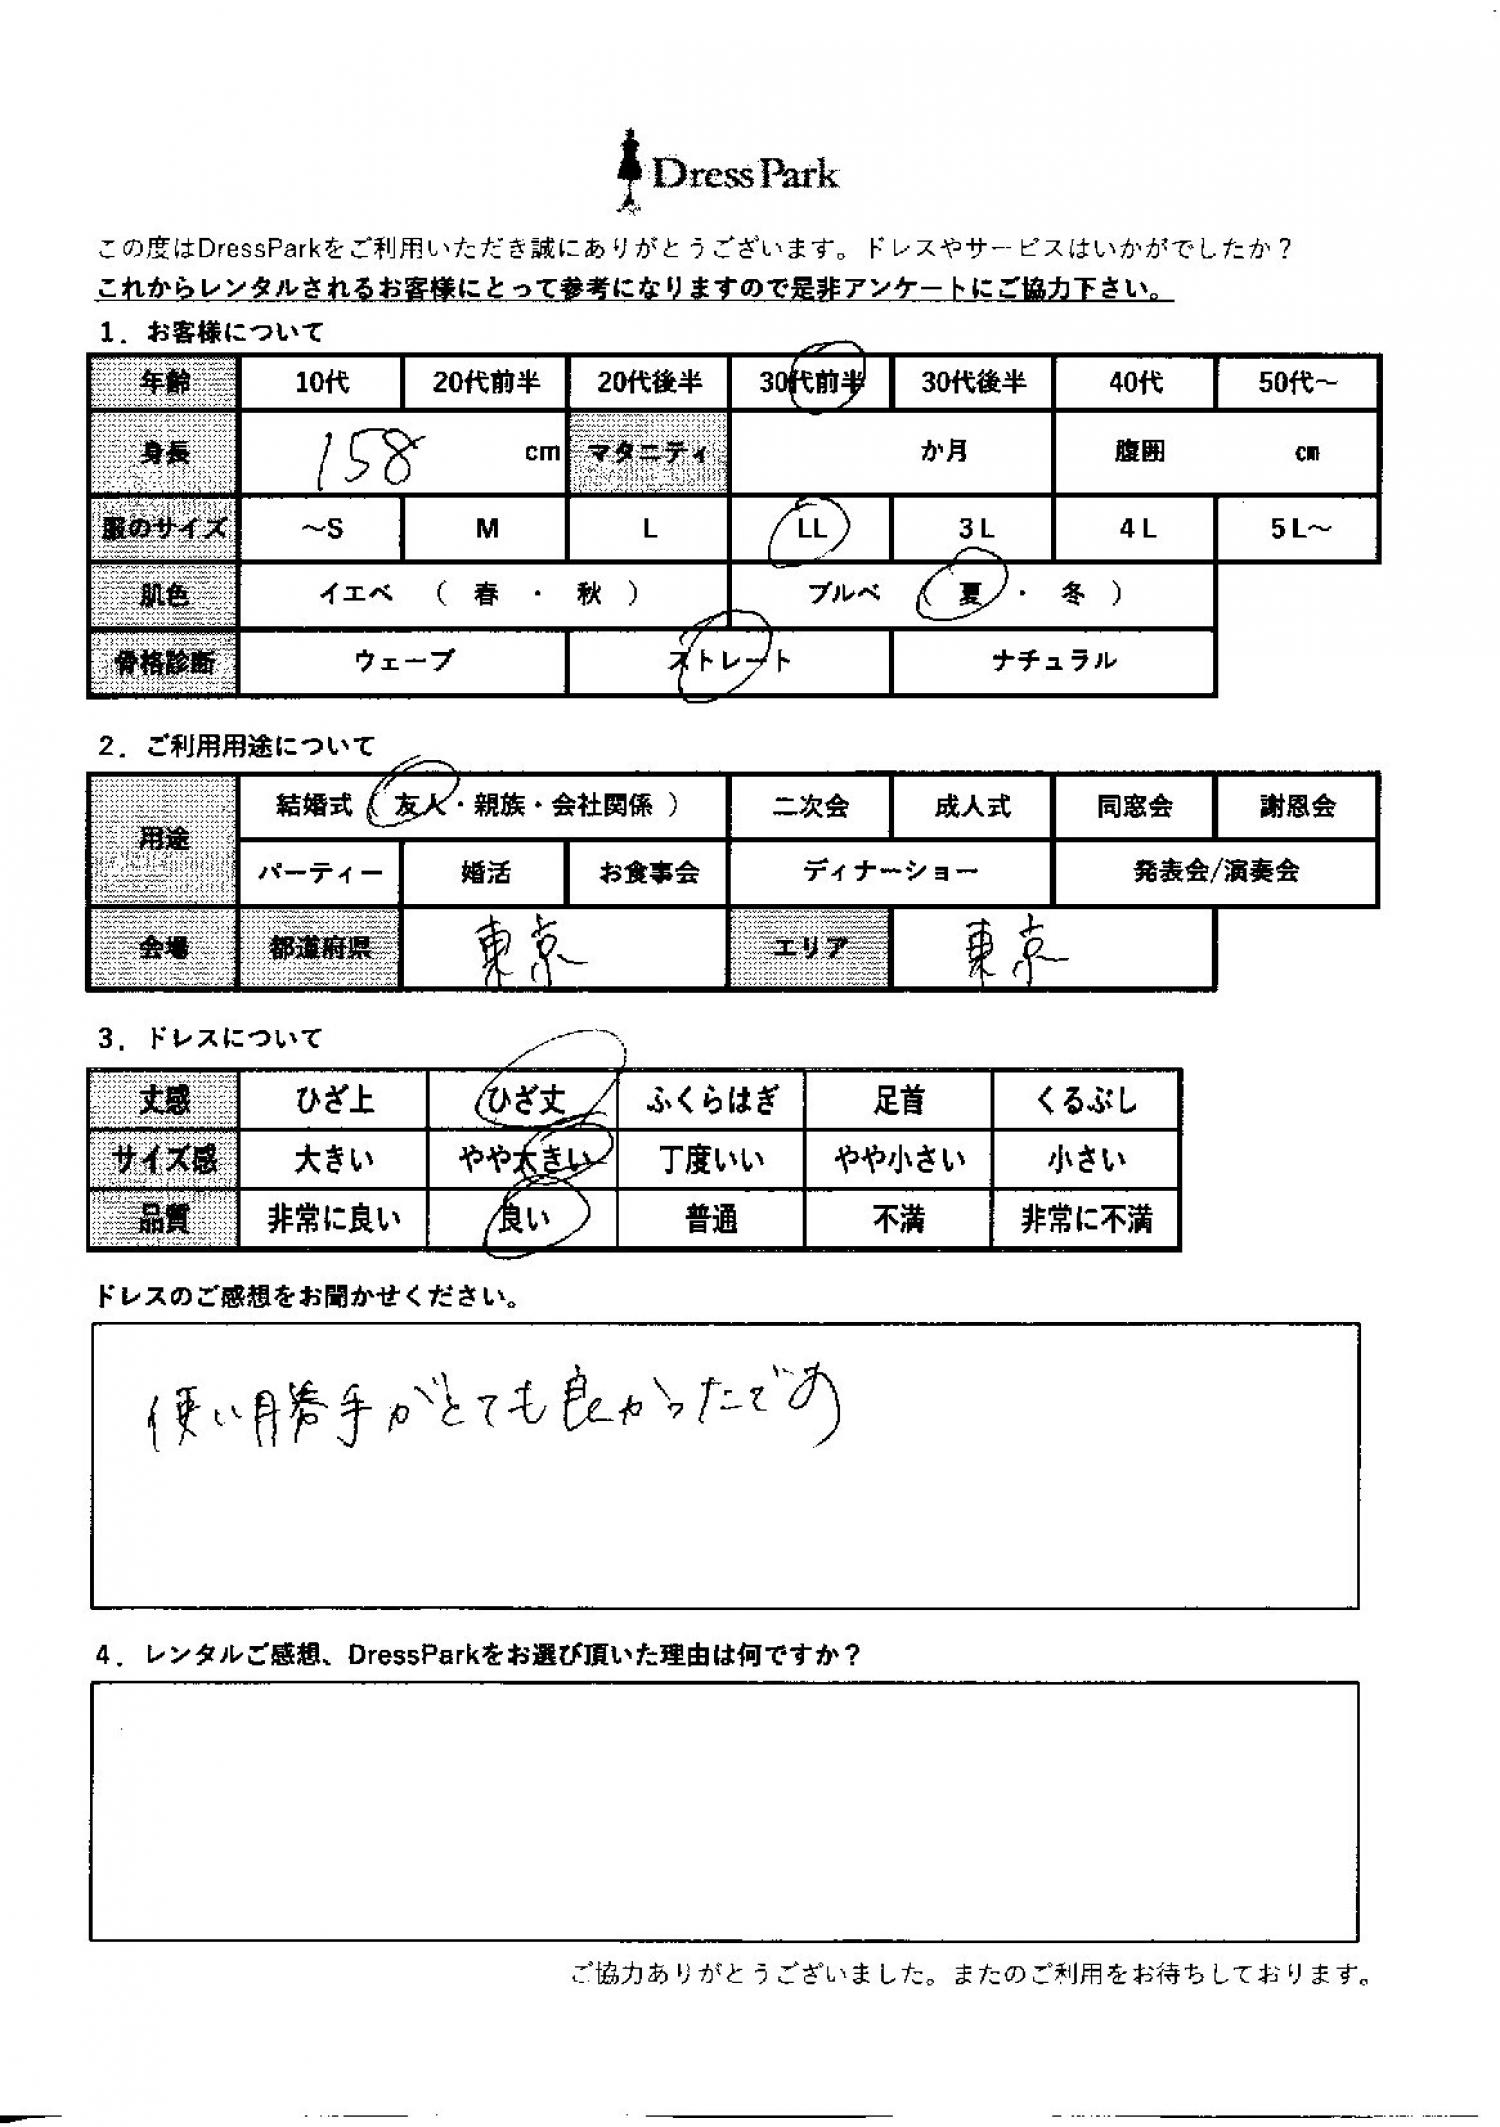 DressPark
この度はDressParkをご利用いただき誠にありがとうございます。ドレスやサービスはいかがでしたか？
これからレンタルされるお客様にとって参考になりますので是非アンケートにご協力下さい。
1．お客様について
年齢 10代 20代前半 20代後半 30代前半 30代後半 40代 50代～
身長 158 cm マタニティ か月 腹囲 cm
服のサイズ ～S M L LL 3L 4L 5L～
肌色 イエベ （ 春 ・ 秋 ） ブルベ （ 夏 ・ 冬 ）
骨格診断 ウェーブ ストレート ナチュラル
2．ご利用用途について
用途 結婚式（ 友人・親族・会社関係 ） 二次会 成人式 同窓会 謝恩会
パーティー 婚活 お食事会 ディナーショー 発表会/演奏会
会場 都道府県 東京 エリア 東京
3．ドレスについて
丈感 ひざ上 ひざ丈 ふくらはぎ 足首 くるぶし
サイズ感 大きい やや大きい 丁度いい やや小さい 小さい
品質 非常に良い 良い 普通 不満 非常に不満
ドレスのご感想をお聞かせください。
使い勝手がとても良かったです
4．レンタルご感想、DressParkをお選び頂いた理由は何ですか？
ご協力ありがとうございました。またのご利用をお待ちしております。